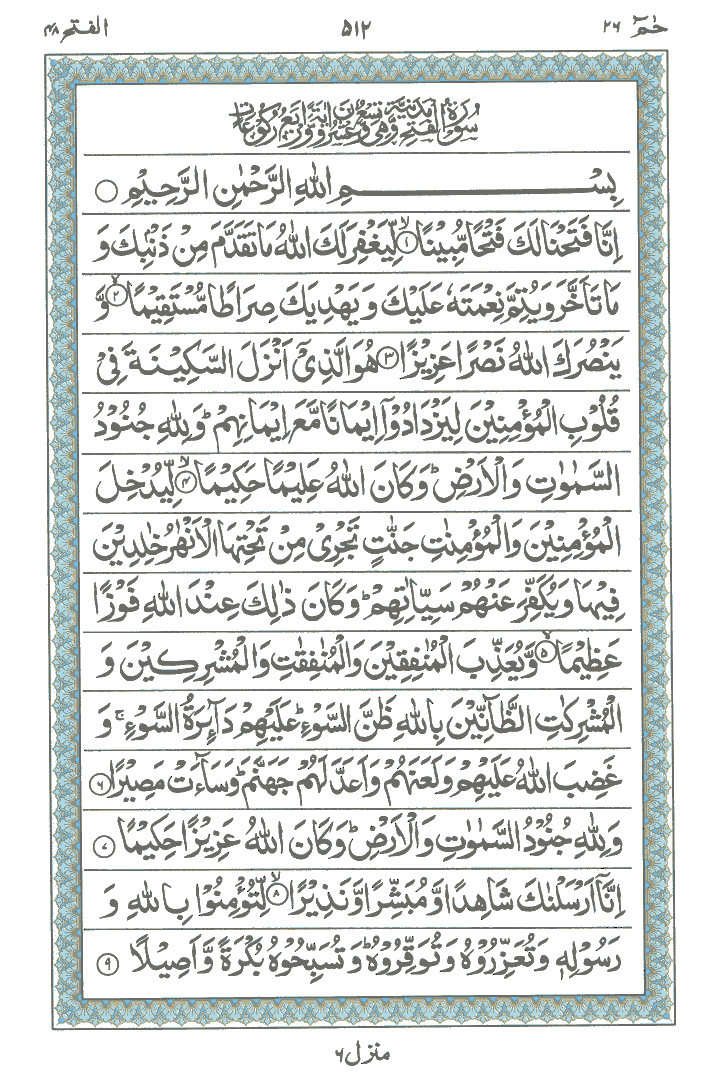 حٰمٓ ٢٦ ٥١٢ الفتح ٤٨
سُوْرَةُ الْفَتْحِ مَدَنِيَّةٌ وَّهِيَ تِسْعٌ وَّعِشْرُوْنَ اٰيَةً وَّاَرْبَعُ رُكُوْعَاتٍ
بِسْمِ اللّٰهِ الرَّحْمٰنِ الرَّحِيْمِ ○
اِنَّا فَتَحْنَا لَكَ فَتْحًا مُّبِيْنًا ۙ﴿١﴾ لِّيَغْفِرَ لَكَ اللّٰهُ مَا تَقَدَّمَ مِنْ ذَنْۢبِكَ وَ
مَا تَاَخَّرَ وَيُتِمَّ نِعْمَتَهٗ عَلَيْكَ وَيَهْدِيَكَ صِرَاطًا مُّسْتَقِيْمًا ۙ﴿٢﴾ وَّ
يَنْصُرَكَ اللّٰهُ نَصْرًا عَزِيْزًا ﴿٣﴾ هُوَ الَّذِيْۤ اَنْزَلَ السَّكِيْنَةَ فِيْ
قُلُوْبِ الْمُؤْمِنِيْنَ لِيَزْدَادُوْۤا اِيْمَانًا مَّعَ اِيْمَانِهِمْ ؕ وَلِلّٰهِ جُنُوْدُ
السَّمٰوٰتِ وَالْاَرْضِ ؕ وَكَانَ اللّٰهُ عَلِيْمًا حَكِيْمًا ۙ﴿٤﴾ لِّيُدْخِلَ
الْمُؤْمِنِيْنَ وَالْمُؤْمِنٰتِ جَنّٰتٍ تَجْرِيْ مِنْ تَحْتِهَا الْاَنْهٰرُ خٰلِدِيْنَ
فِيْهَا وَيُكَفِّرَ عَنْهُمْ سَيِّاٰتِهِمْ ؕ وَكَانَ ذٰلِكَ عِنْدَ اللّٰهِ فَوْزًا
عَظِيْمًا ۙ﴿٥﴾ وَّيُعَذِّبَ الْمُنٰفِقِيْنَ وَالْمُنٰفِقٰتِ وَالْمُشْرِكِيْنَ وَ
الْمُشْرِكٰتِ الظَّآنِّيْنَ بِاللّٰهِ ظَنَّ السَّوْءِ ؕ عَلَيْهِمْ دَآئِرَةُ السَّوْءِ ۚ وَ
غَضِبَ اللّٰهُ عَلَيْهِمْ وَلَعَنَهُمْ وَاَعَدَّ لَهُمْ جَهَنَّمَ ؕ وَسَآءَتْ مَصِيْرًا ﴿٦﴾
وَلِلّٰهِ جُنُوْدُ السَّمٰوٰتِ وَالْاَرْضِ ؕ وَكَانَ اللّٰهُ عَزِيْزًا حَكِيْمًا ﴿٧﴾
اِنَّاۤ اَرْسَلْنٰكَ شَاهِدًا وَّمُبَشِّرًا وَّنَذِيْرًا ۙ﴿٨﴾ لِّتُؤْمِنُوْا بِاللّٰهِ وَ
رَسُوْلِهٖ وَتُعَزِّرُوْهُ وَتُوَقِّرُوْهُ ؕ وَتُسَبِّحُوْهُ بُكْرَةً وَّاَصِيْلًا ﴿٩﴾
منزل ٦